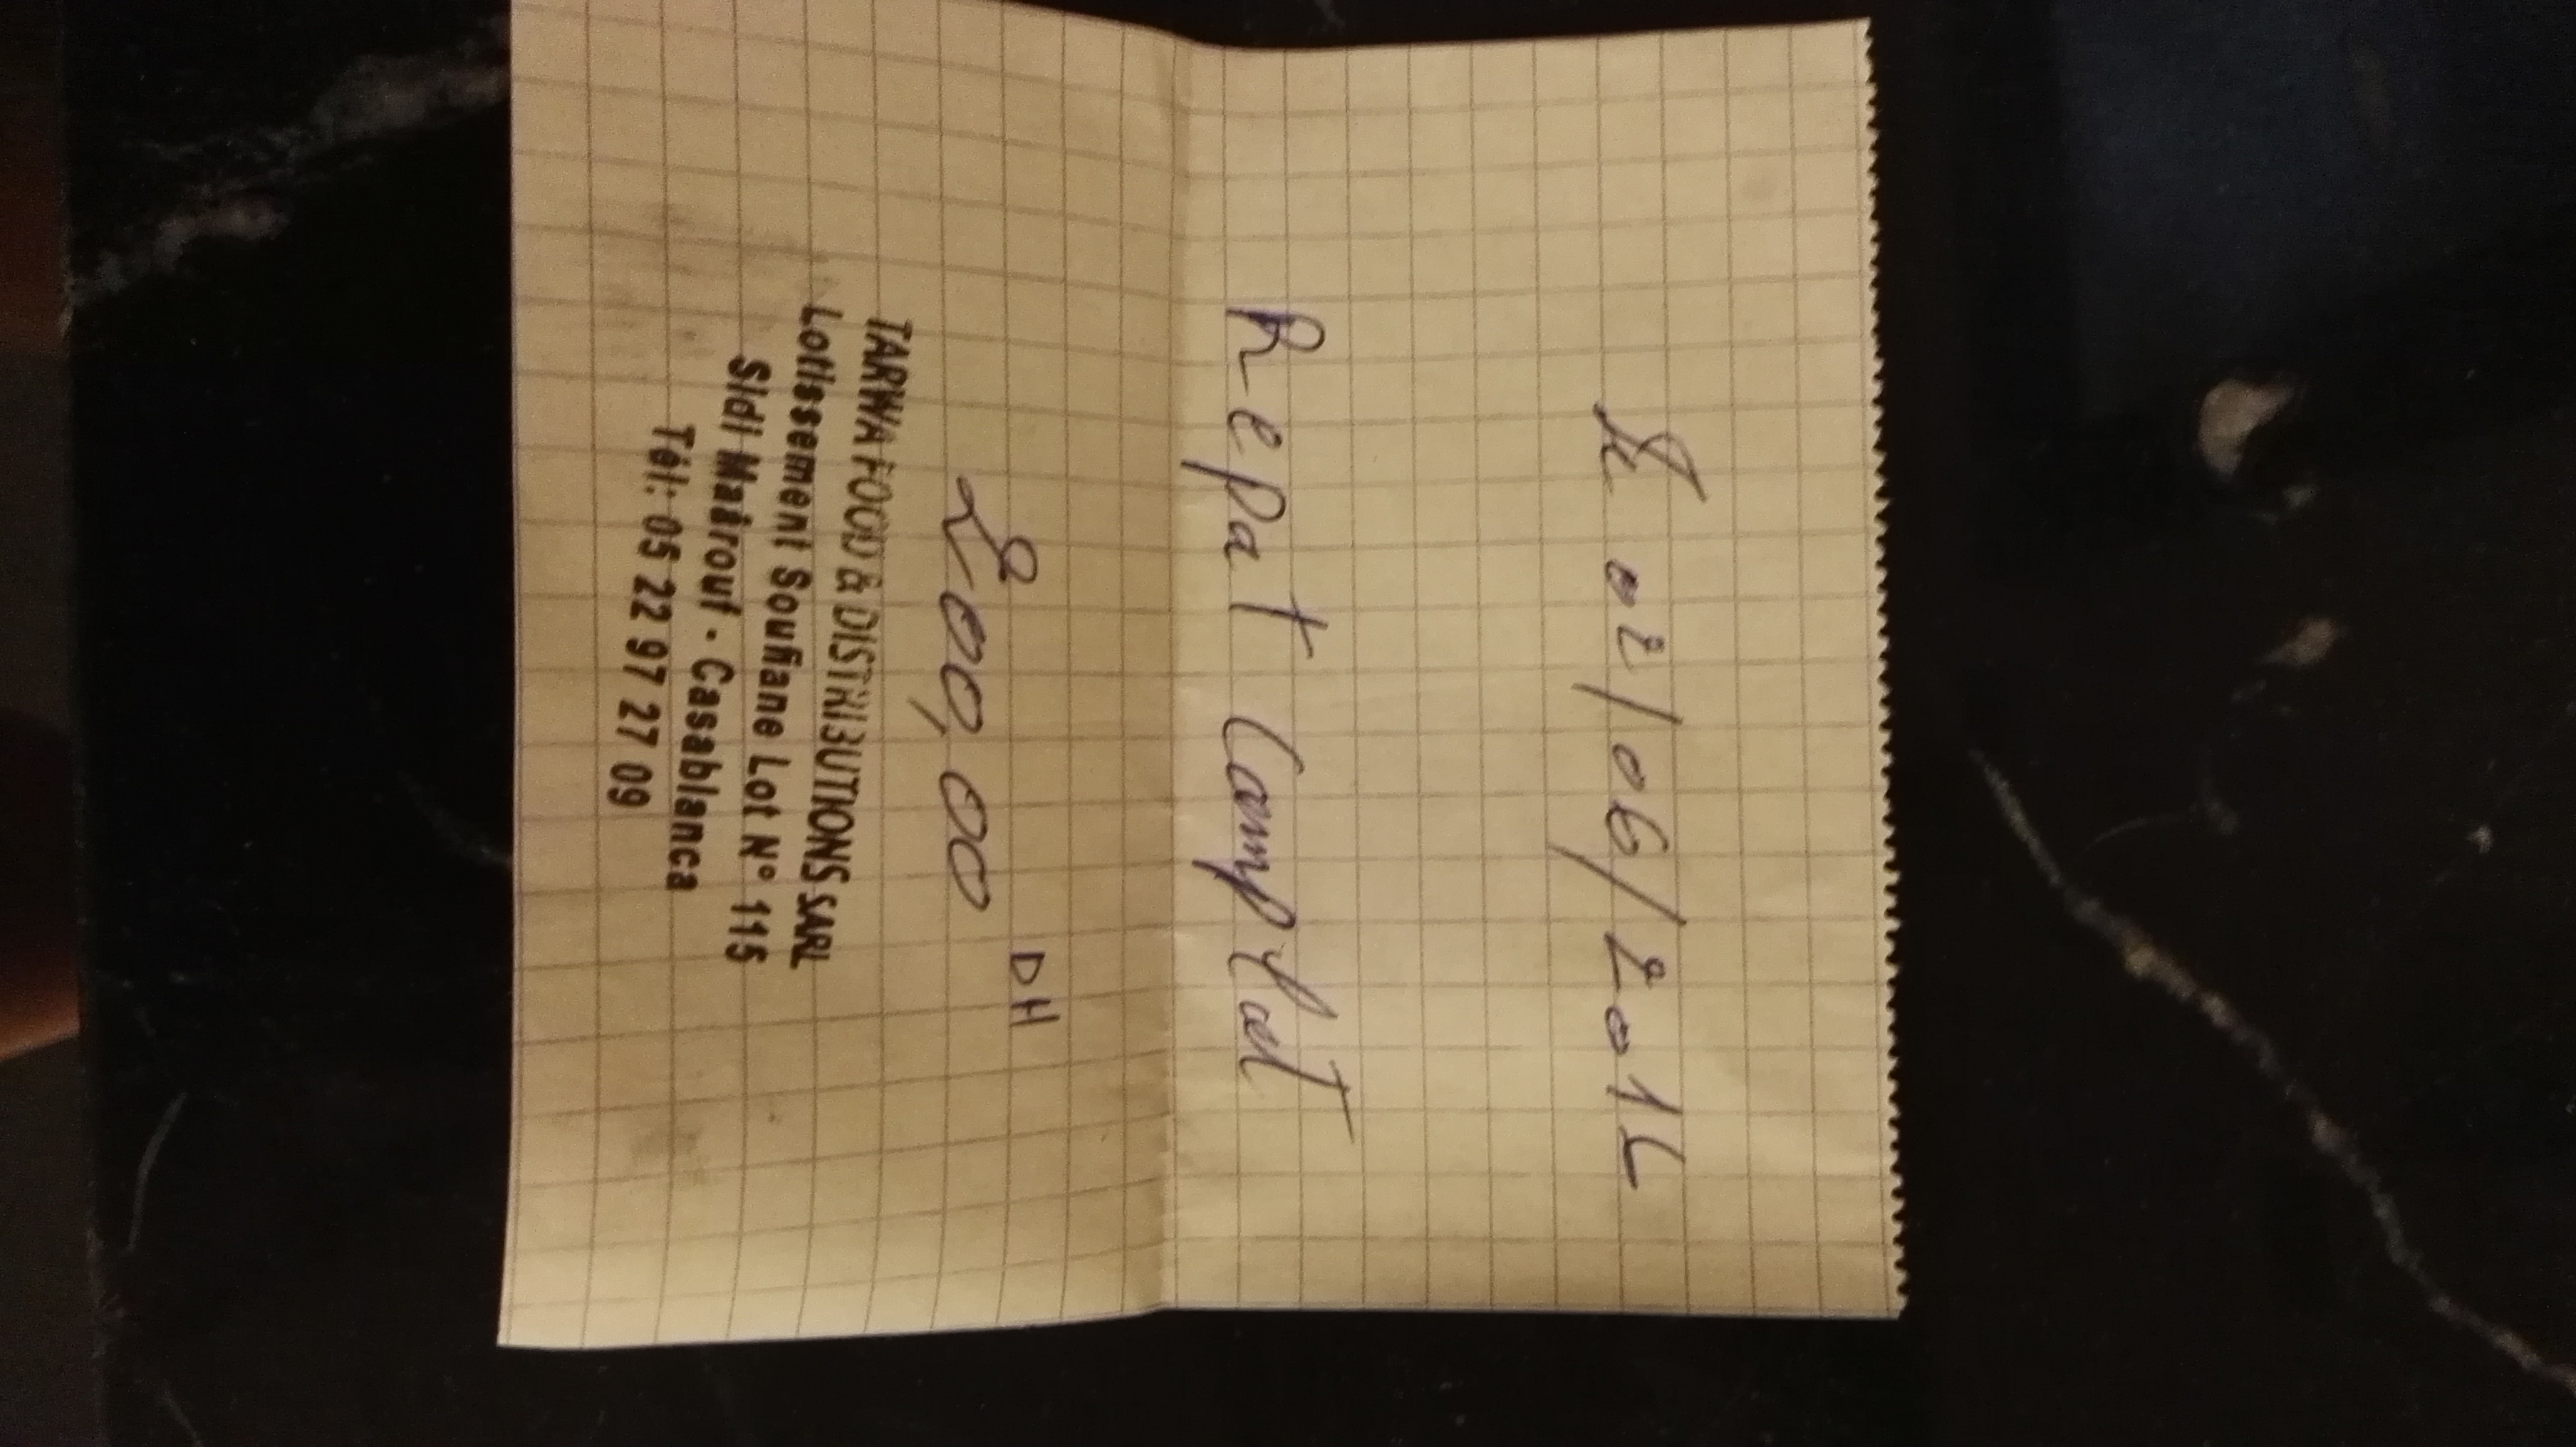 le 02/06/2012
Repat Complet
DH
200,00
TARWA FOOD & DISTRIBUTIONS SARL
Lotissement Soufiane Lot N° 115
Sidi Maârouf - Casablanca
Tél: 05 22 97 27 09